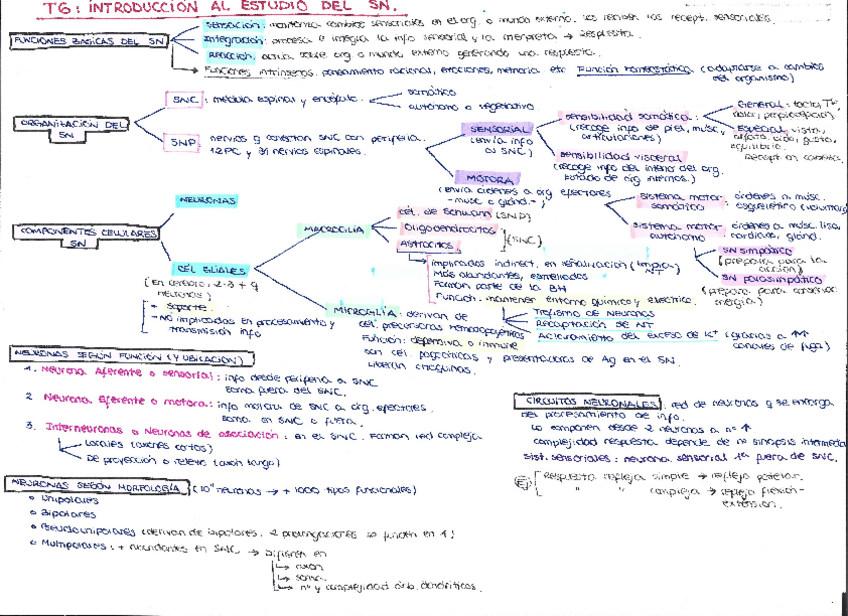 T6: INTRODUCCIÓN AL ESTUDIO DEL SN.
FUNCIONES BÁSICAS DEL SN
Sensación: monitoriza cambios sensoriales en el org. o mundo externo. Los reciben los recept. sensoriales.
Integración: procesa e integra la info sensorial y la interpreta → Respuesta.
Reacción: actúa sobre org o mundo externo generando una respuesta.
Funciones intrínsecas: pensamiento racional, emociones, memoria etc. Función homeostática. (adaptarse a cambios del organismo)
ORGANIZACIÓN DEL SN
SNC: médula espinal y encéfalo.
somático
autónomo o vegetativo
SNP: nervios q conectan SNC con periferia.
12 PC y 31 nervios espinales.
SENSORIAL
(envía info al SNC)
sensibilidad somática:
(recoge info de piel, musc, y articulaciones)
General: tacto, Tª, dolor, propiocepción
Especial: vista, olfato, oído, gusto, equilibrio.
sensibilidad visceral
(recoge info del interno del org. Estado de org internos.)
MOTORA
(envía órdenes a org efectores
- musc o glánd.)
sistema motor somático: órdenes a músc. esquelético (voluntario)
sistema motor autónomo: órdenes a músc. liso, cardíaco, glánd.
SN simpático
(prepara para la acción)
SN parasimpático
(prepara para conservar energía)
COMPONENTES CELULARES SN
NEURONAS
CÉL GLIALES
(En cerebro: 2-3 + q neuronas)
- Soporte
- No implicadas en procesamiento y transmisión info
MACROGLÍA
cél. de Schwann (SNP)
Oligodendrocitos
Astrocitos
(SNC)
implicados indirect. en señalización (limpia NT)
Más abundantes, estrellados
Forman parte de la BH
Función: mantener entorno químico y eléctrico.
Trofismo de Neuronas
Recaptación de NT
Aclaramiento del exceso de K+ (gracias a ↑↑ canales de fuga)
MICROGLÍA: derivan de
cél. precursoras hematopoyéticas
Función: defensiva o inmune
son cél. fagocíticas y presentadoras de Ag en el SN.
Liberan citoquinas.
NEURONAS SEGÚN FUNCIÓN (Y UBICACIÓN)
1. Neurona Aferente o sensorial: info desde periferia a SNC
soma fuera del SNC.
2. Neurona Eferente o motora: info motora de SNC a org. efectores.
soma en SNC o fuera.
3. Interneuronas o Neuronas de asociación: en el SNC. Forman red compleja
Locales (axones cortos)
De proyección o relevo (axón largo)
CIRCUITOS NEURONALES: red de neuronas q se encarga
del procesamiento de info.
Lo componen desde 2 neuronas a nº ↑
complejidad respuesta depende de nº sinapsis intermedia
sist. sensoriales: neurona sensorial 1ª fuera de SNC.
Ej Respuesta refleja simple → reflejo patelar.
" " compleja → reflejo flexión-extensión.
NEURONAS SEGÚN MORFOLOGÍA (neuronas → + 1000 tipos funcionales)
Unipolares
Bipolares
Pseudounipolares (derivan de bipolares. 2 prolongaciones se funden en 1)
Multipolares: + abundantes en SNC → Difieren en
↳ axón
↳ soma
↳ nº y complejidad árb. dendríticos.